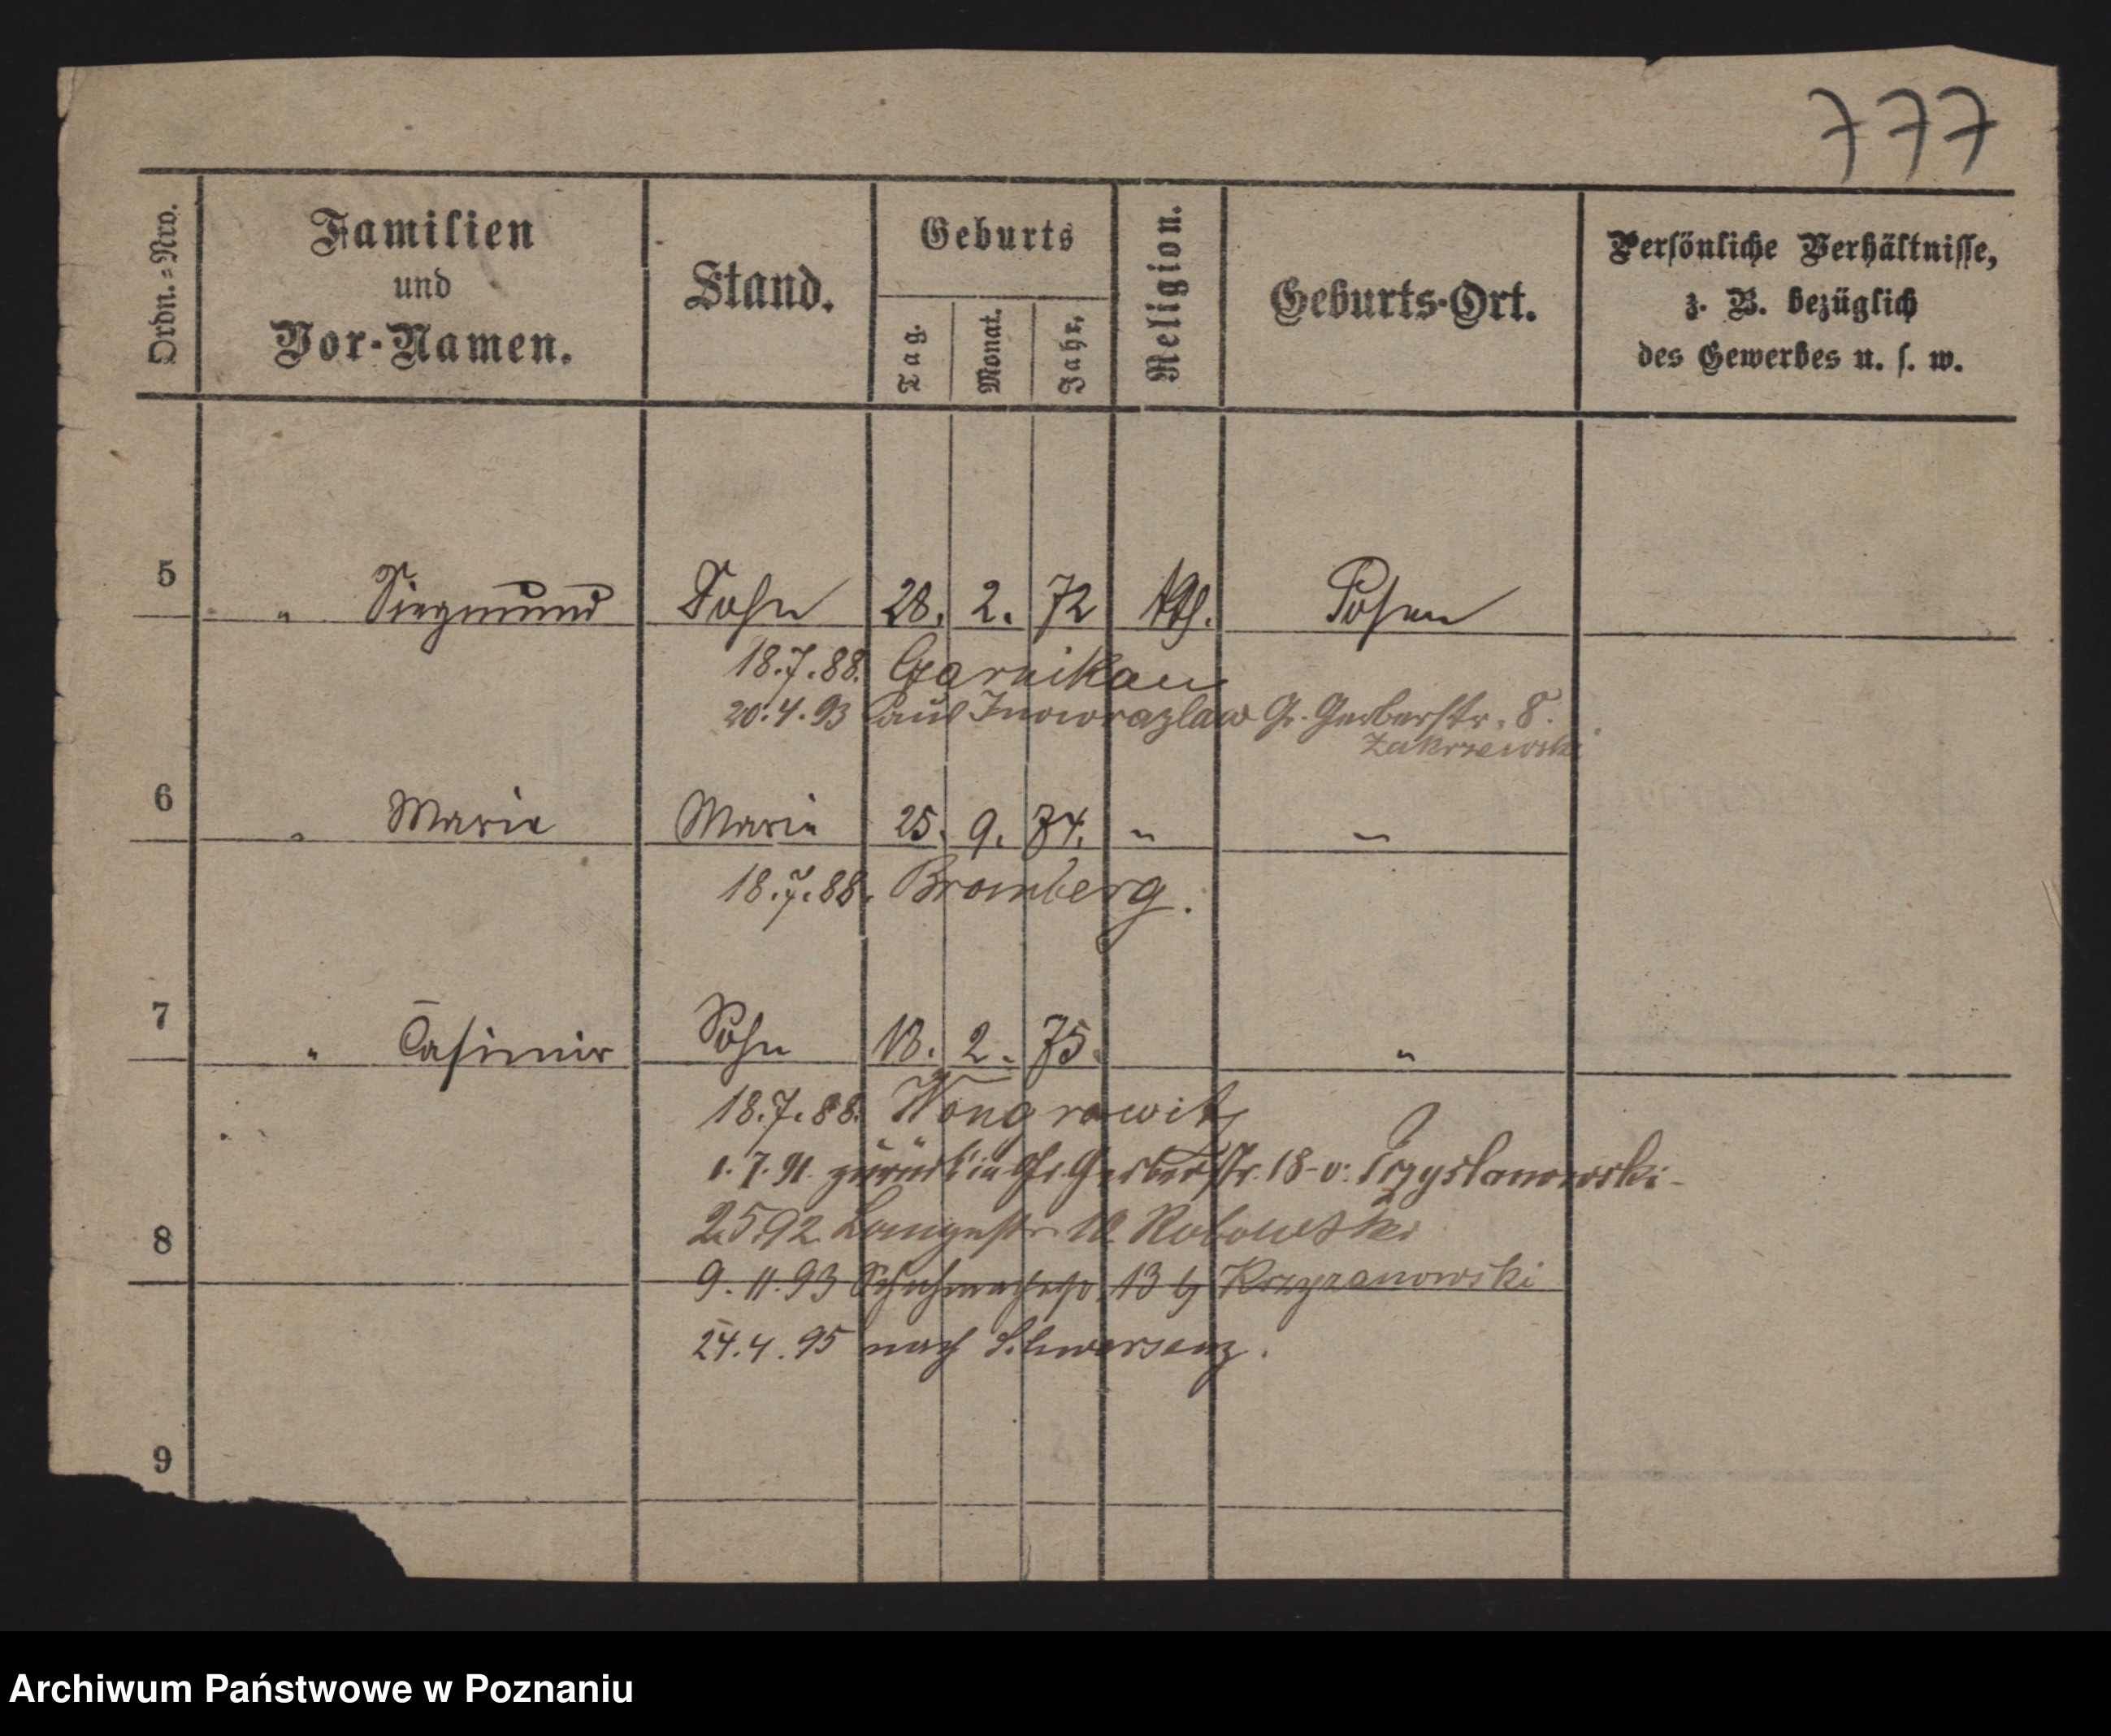 777
Ordn.=Nro.
Familien
und
Vor-Namen.
Stand.
Geburts
Tag.
Monat.
Jahr.
Religion.
Geburts-Ort.
Persönliche Verhältnisse,
z. B. bezüglich
des Gewerbes u. s. w.
5 " Siegmund Sohn 28. 2. 72 Posen
18.7.88. Czarnikau
20.4.93 Inowrazlaw Gr. Gerberstr. 8.
Zakrzewski
6 " Maria Maria 25. 9. 74. " "
18.7.88. Bromberg.
7 " Casimir Sohn 18. 2. 75. "
18.7.88. Wongrowitz
1.7.91. zurück in Gr. Gerberstr. 18 v. Przystanowski
2.5.92 Langestr. 10. Robowski
9.11.93 13 b Krzyzanowski
8
24.4.95 nach Schwersenz.
9
Archiwum Państwowe w Poznaniu